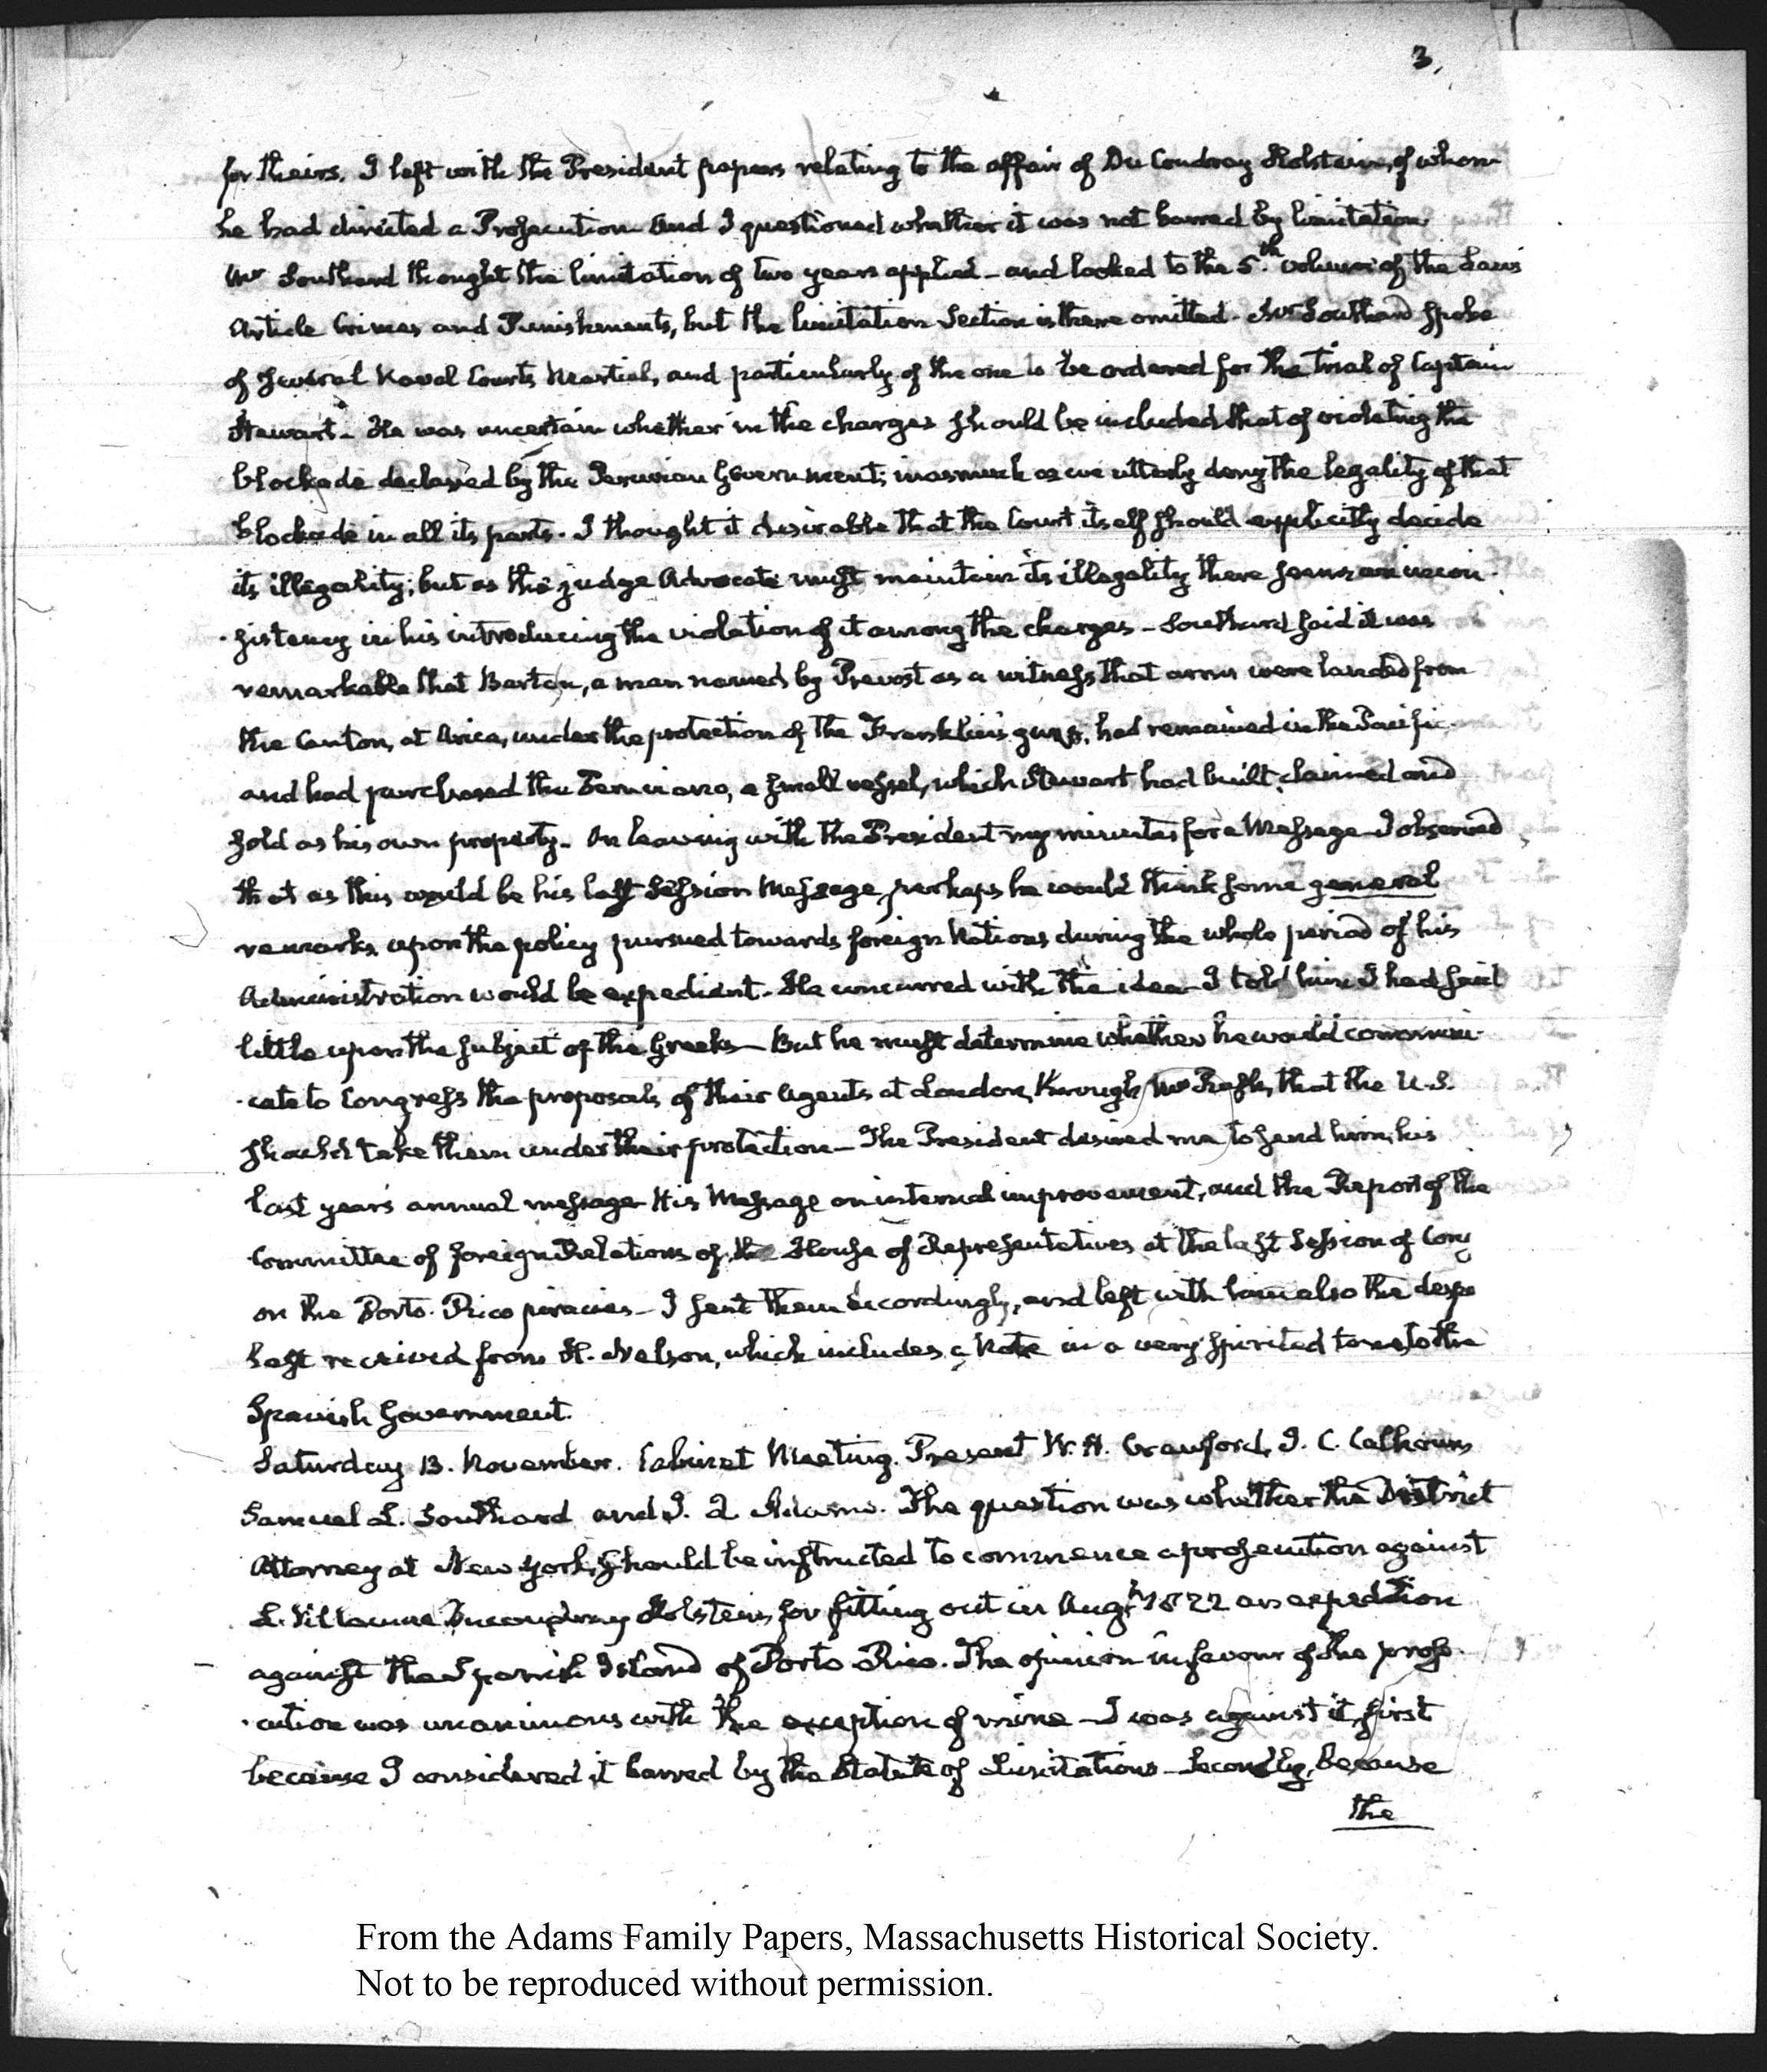 3.
for theirs. I left with the President papers relating to the affair of Du Coudray Holstein, of whom
he had directed a Prosecution and I questioned whether it was not barred by limitation
Mr Southard thought the limitation of two years applied – and looked to the 5th volume of the Laws
Article Crimes and Punishments, but the limitation Section is there omitted. Mr Southard spoke
of several Naval Courts Martial, and particularly of the one to be ordered for the trial of Captain
Stewart – He was uncertain whether in the charges should be included that of violating the
blockade declared by the Peruvian Government; inasmuch as we utterly deny the legality of that
blockade in all its parts. I thought it desirable that the Court itself should explicitly decide
its illegality; but as the judge Advocate must maintain its illegality there seems an incon-
-sistency in his introducing the violation of it among the charges – Southard said it was
remarkable that Barton, a man named by Prevost as a witness that arms were landed from
the Canton, at Arica, under the protection of the Franklin's guns, had remained in the Pacific
and had purchased the Peruviano, a small vessel, which Stewart had built, claimed and
sold as his own property. On leaving with the President my minutes for a Message I observed
that as this would be his last Session Message, perhaps he would think some general
remarks upon the policy pursued towards foreign Nations during the whole period of his
Administration would be expedient. He concurred with the idea – I told him I had said
little upon the subject of the Greeks – But he must determine whether he would communi-
-cate to Congress the proposals of their Agents at London, through Mr Rush, that the U.S.
should take them under their protection – The President desired me to send him, his
last year's annual message His Message on internal improvement, and the Report of the
Committee of foreign Relations of the House of Representatives at the last Session of Cong
on the Porto-Rico piracies – I sent them accordingly, and left with him also the desp
last received from H. Nelson, which includes a Note in a very spirited tone, to the
Spanish Government.
Saturday 13. November. Cabinet Meeting. Present W. H. Crawford, J. C. Calhoun,
Samuel L. Southard and J. Q. Adams. The question was whether the District
Attorney at New York, should be instructed to commence a prosecution against
L. Villaume Ducoudray Holstein, for fitting out in Augt 1822 an expedition
against the Spanish Island of Porto Rico. The opinion in favour of the prose-
-cution was unanimous with the exception of mine – I was against it, first
because I considered it barred by the Statute of Limitations – Secondly, because
the
From the Adams Family Papers, Massachusetts Historical Society.
Not to be reproduced without permission.